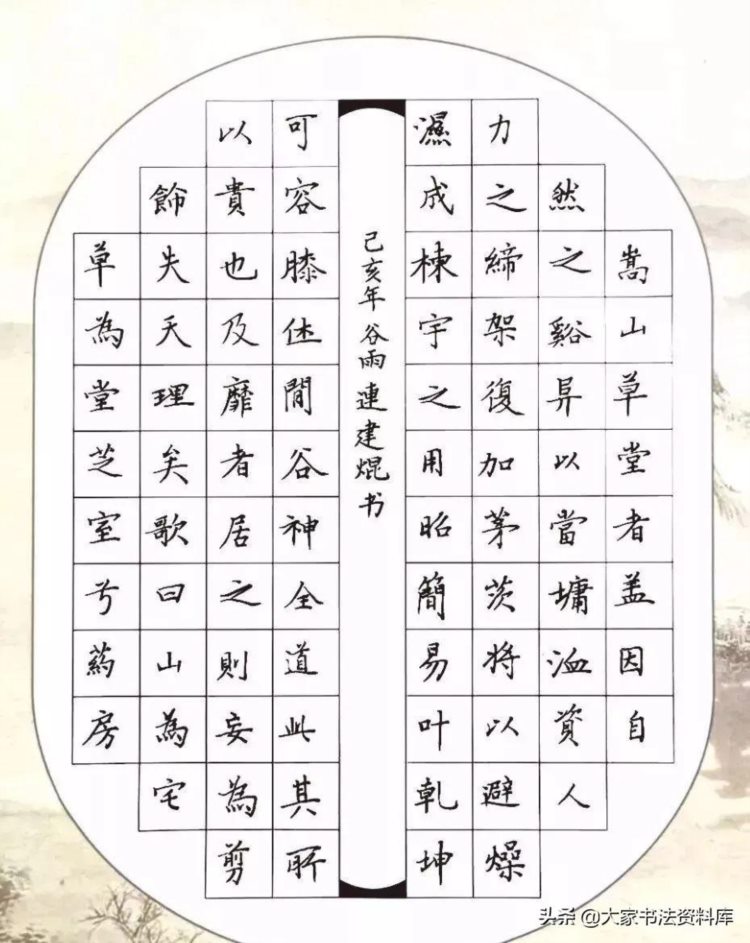 嵩山草堂者盖因自
然之谿阜以當墉洫資人
力之締架復加茅茨将以避燥
濕成棟宇之用昭簡易叶乾坤
己亥年谷雨連建焜书
可容膝休間谷神全道此其所
以貴也及靡者居之則妄為剪
飾失天理矣歌曰山為宅
草為堂芝室兮葯房
头条 @大家书法资料库